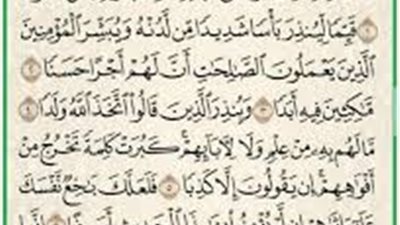 ۝١ قَيِّمًا لِّيُنذِرَ بَأْسًا شَدِيدًا مِّن لَّدُنْهُ وَيُبَشِّرَ الْمُؤْمِنِينَ
الَّذِينَ يَعْمَلُونَ الصَّالِحَاتِ أَنَّ لَهُمْ أَجْرًا حَسَنًا ۝٢
مَّاكِثِينَ فِيهِ أَبَدًا ۝٣ وَيُنذِرَ الَّذِينَ قَالُوا اتَّخَذَ اللَّهُ وَلَدًا ۝٤
مَّا لَهُم بِهِ مِنْ عِلْمٍ وَلَا لِآبَائِهِمْ كَبُرَتْ كَلِمَةً تَخْرُجُ مِنْ
أَفْوَاهِهِمْ إِن يَقُولُونَ إِلَّا كَذِبًا ۝٥ فَلَعَلَّكَ بَاخِعٌ نَّفْسَكَ